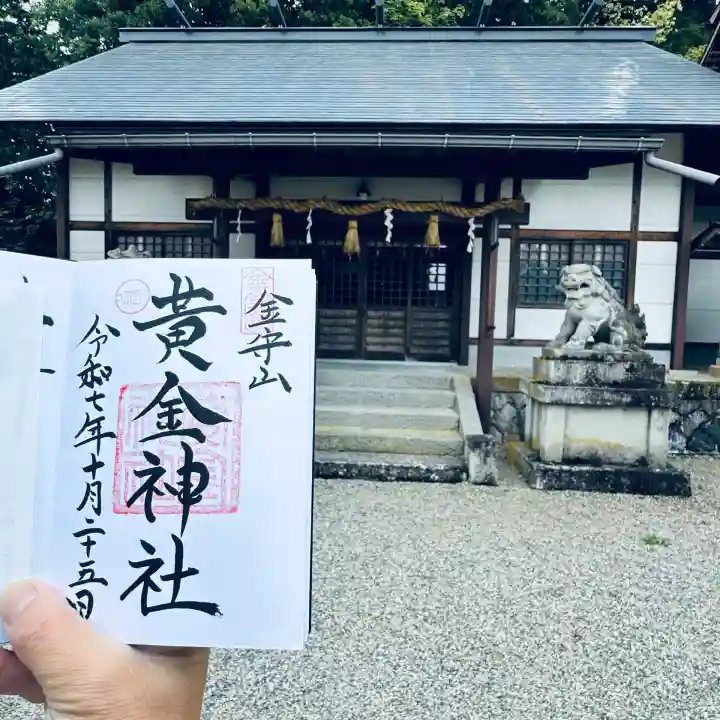 金守山
黄金神社
令和七年十月二十五日